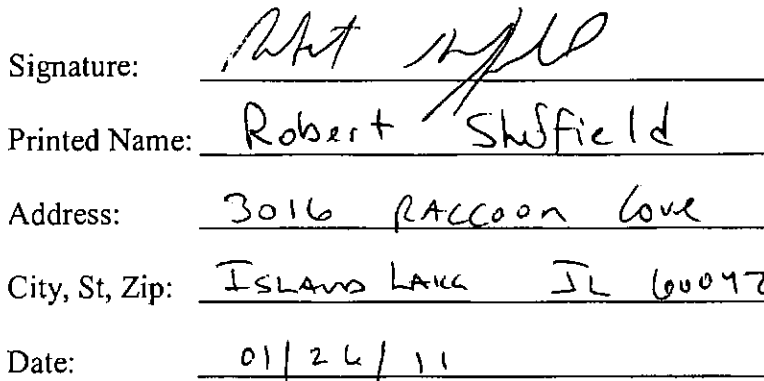 Signature: Robert Sheffield
Printed Name: Robert Sheffield
Address: 3016 RACCOON Cove
City, St, Zip: ISLAND LAKE IL 60042
Date: 01/26/11